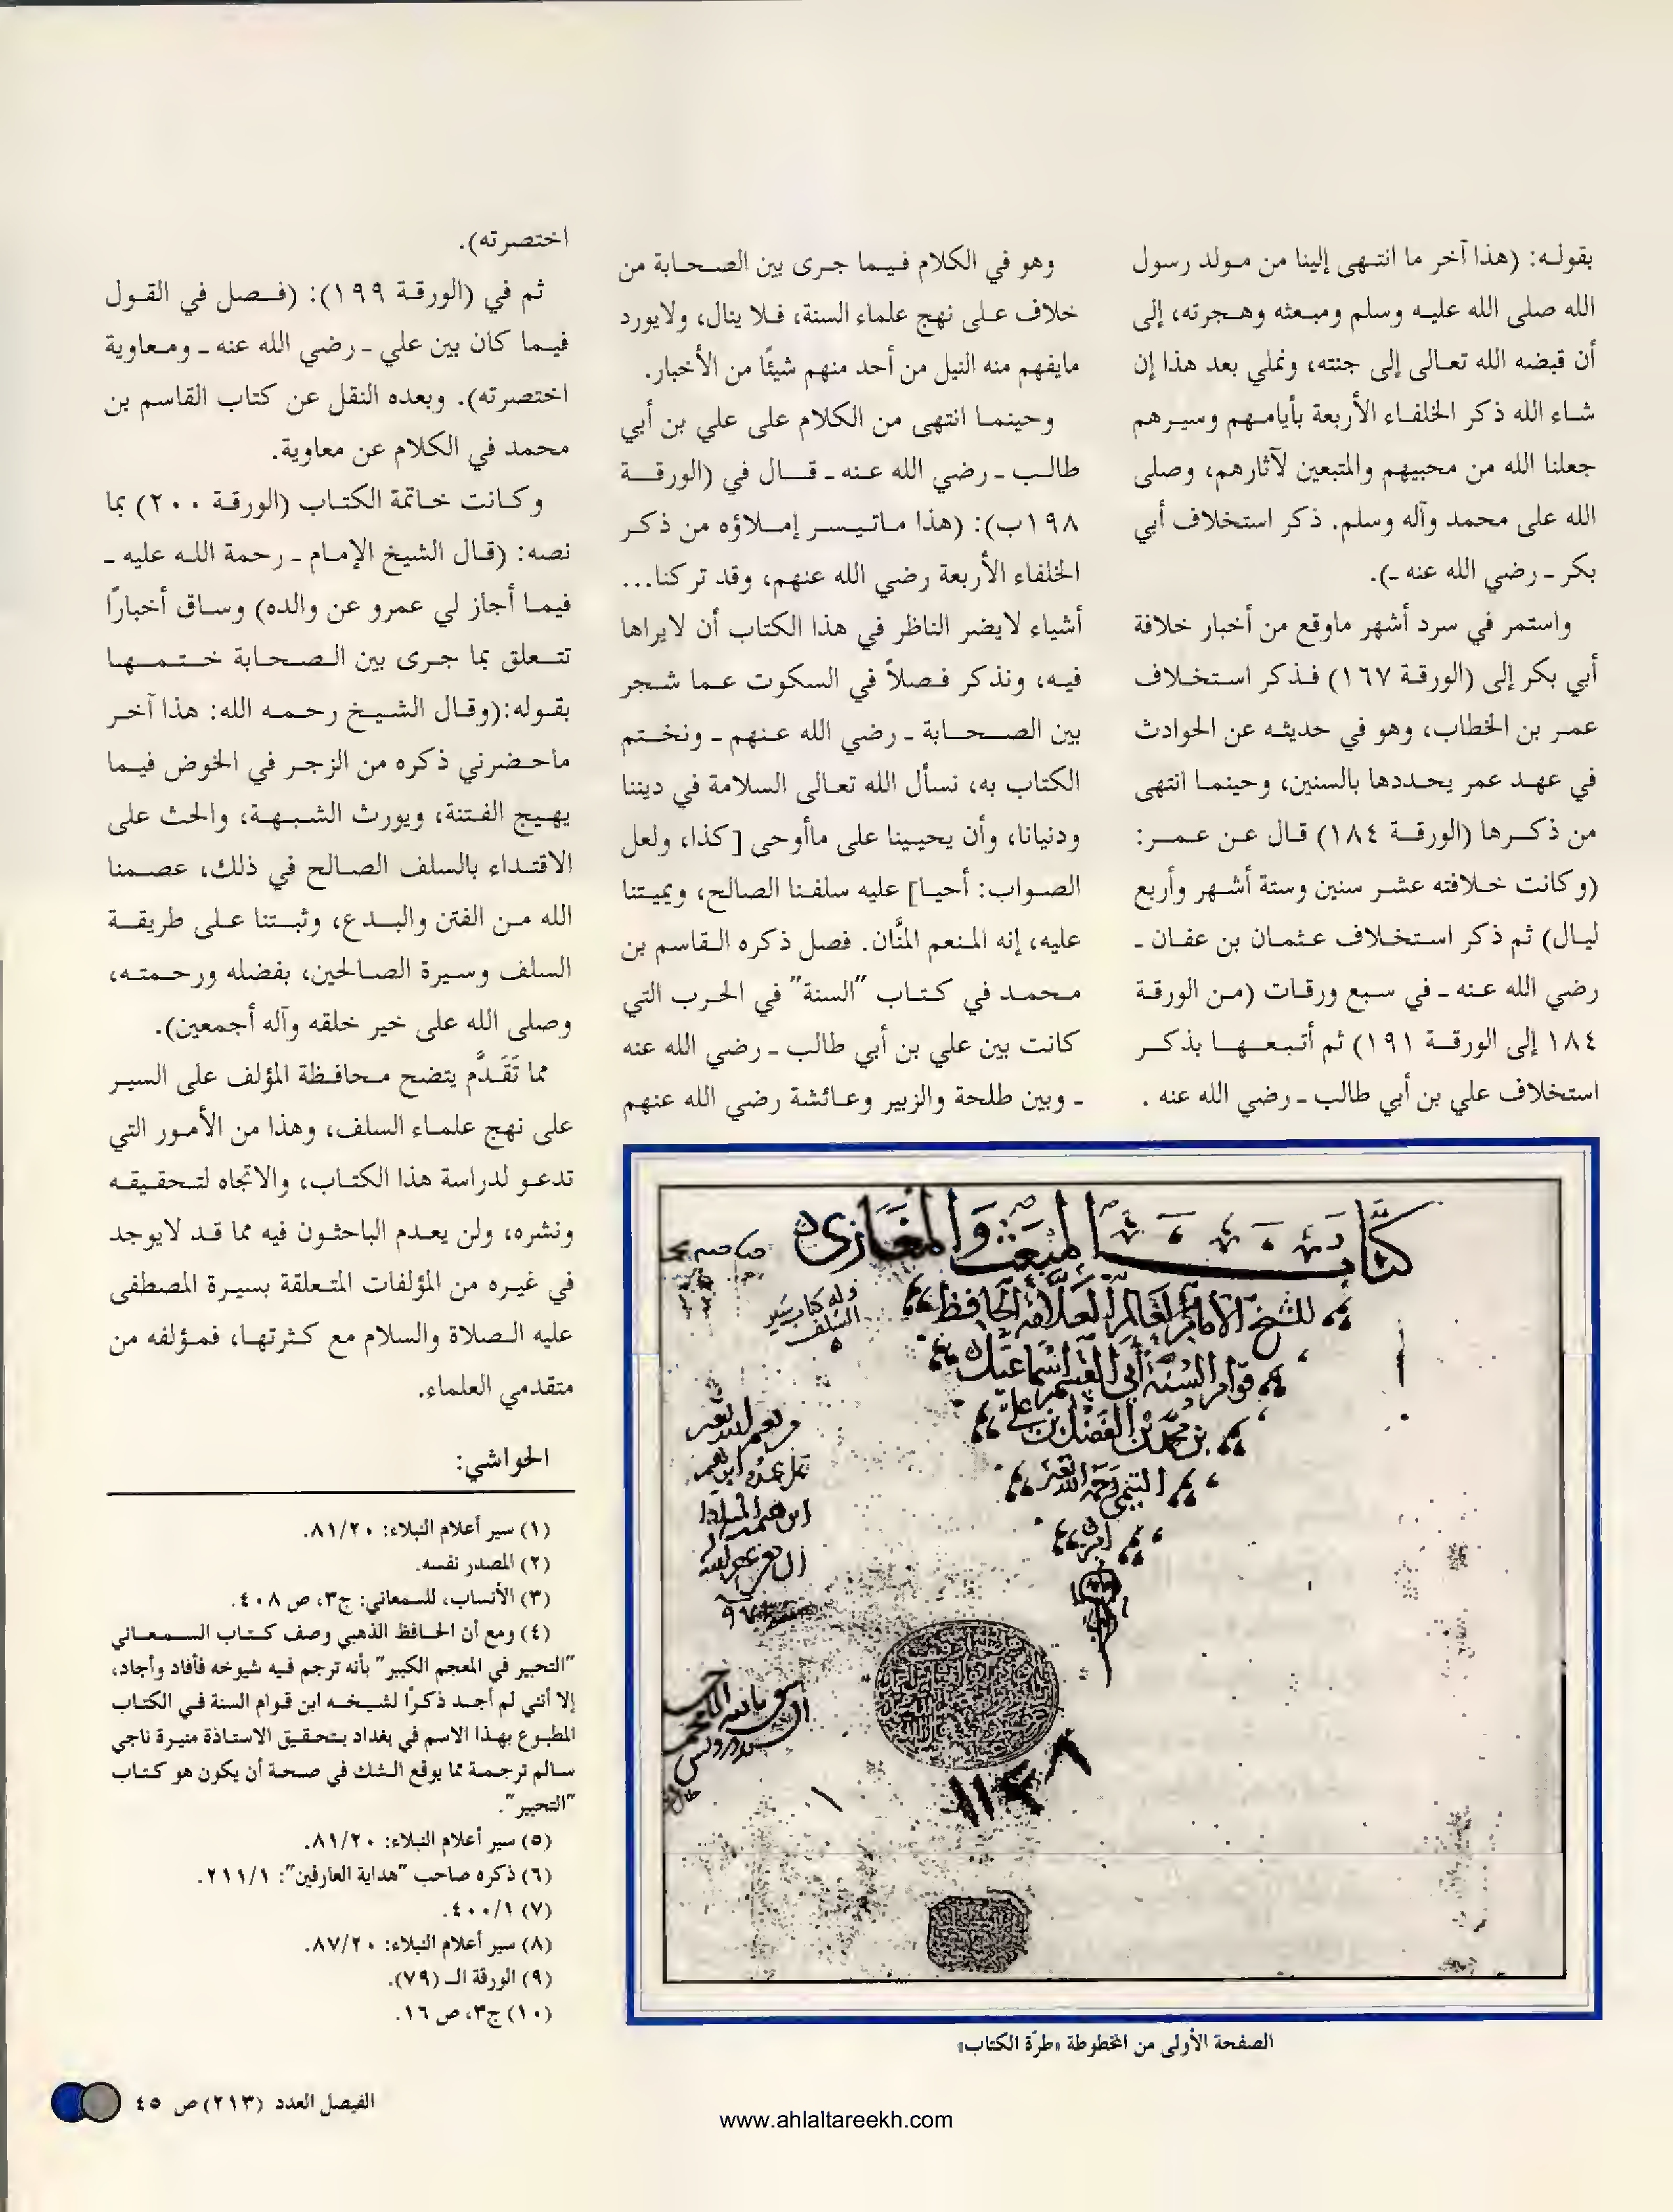 بقوله: (هذا آخر ما انتهى إلينا من مولد رسول
الله صلى الله عليه وسلم ومبعثه وهجرته، إلى
أن قبضه الله تعالى إلى جنته، ونملي بعد هذا إن
شاء الله ذكر الخلفاء الأربعة بأيامهم وسيرهم
جعلنا الله من محبيهم والمتبعين لآثارهم، وصلى
الله على محمد وآله وسلم. ذكر استخلاف أبي
بكر ـ رضي الله عنه ـ).
واستمر في سرد أشهر ماوقع من أخبار خلافة
أبي بكر إلى (الورقة ١٦٧) فذكر استخلاف
عمر بن الخطاب، وهو في حديثه عن الحوادث
في عهد عمر يحددها بالسنين، وحينما انتهى
من ذكرها (الورقة ١٨٤) قال عن عمر:
(وكانت خلافته عشر سنين وستة أشهر وأربع
ليال) ثم ذكر استخلاف عثمان بن عفان ـ
رضي الله عنه ـ في سبع ورقات (من الورقة
١٨٤ إلى الورقة ١٩١) ثم أتبعها بذكر
استخلاف علي بن أبي طالب ـ رضي الله عنه .
وهو في الكلام فيما جرى بين الصحابة من
خلاف على نهج علماء السنة، فلا ينال، ولايورد
مايفهم منه النيل من أحد منهم شيئًا من الأخبار.
وحينما انتهى من الكلام على علي بن أبي
طالب ـ رضي الله عنه ـ قال في (الورقة
١٩٨ب): (هذا ماتيسر إملاؤه من ذكر
الخلفاء الأربعة رضي الله عنهم، وقد تركنا...
أشياء لايضر الناظر في هذا الكتاب أن لايراها
فيه، ونذكر فصلاً في السكوت عما شجر
بين الصحابة ـ رضي الله عنهم ـ ونختم
الكتاب به، نسأل الله تعالى السلامة في ديننا
ودنيانا، وأن يحيينا على ماأوحى [كذا، ولعل
الصواب: أحيا] عليه سلفنا الصالح، ويميتنا
عليه، إنه المنعم المنَّان. فصل ذكره القاسم بن
محمد في كتاب "السنة" في الحرب التي
كانت بين علي بن أبي طالب ـ رضي الله عنه
ـ وبين طلحة والزبير وعائشة رضي الله عنهم
اختصرته).
ثم في (الورقة ١٩٩): (فصل في القول
فيما كان بين علي ـ رضي الله عنه ـ ومعاوية
اختصرته). وبعده النقل عن كتاب القاسم بن
محمد في الكلام عن معاوية.
وكانت خاتمة الكتاب (الورقة ٢٠٠) بما
نصه: (قال الشيخ الإمام ـ رحمة الله عليه ـ
فيما أجاز لي عمرو عن والده) وساق أخبارًا
تتعلق بما جرى بين الصحابة ختمها
بقوله:(وقال الشيخ رحمه الله: هذا آخر
ماحضرني ذكره من الزجر في الخوض فيما
يهيج الفتنة، ويورث الشبهة، والحث على
الاقتداء بالسلف الصالح في ذلك، عصمنا
الله من الفتن والبدع، وثبتنا على طريقة
السلف وسيرة الصالحين، بفضله ورحمته،
وصلى الله على خير خلقه وآله أجمعين).
مما تَقَدَّم يتضح محافظة المؤلف على السير
على نهج علماء السلف، وهذا من الأمور التي
تدعو لدراسة هذا الكتاب، والاتجاه لتحقيقه
ونشره، ولن يعدم الباحثون فيه مما قد لايوجد
في غيره من المؤلفات المتعلقة بسيرة المصطفى
عليه الصلاة والسلام مع كثرتها، فمؤلفه من
متقدمي العلماء.
الحواشي:
(١) سير أعلام النبلاء: ٨١/٢٠.
(٢) المصدر نفسه.
(٣) الأنساب، للسمعاني: ج٣، ص ٤٠٨.
(٤) ومع أن الحافظ الذهبي وصف كتاب السمعاني
"التحبير في المعجم الكبير" بأنه ترجم فيه شيوخه فأفاد وأجاد،
إلا أنني لم أجد ذكرًا لشيخه ابن قوام السنة في الكتاب
المطبوع بهذا الاسم في بغداد بتحقيق الاستاذة منيرة ناجي
سالم ترجمة مما يوقع الشك في صحة أن يكون هو كتاب
"التحبير".
(٥) سير أعلام النبلاء: ٨١/٢٠.
(٦) ذكره صاحب "هداية العارفين": ٢١١/١.
(٧) ٤٠٠/١.
(٨) سير أعلام النبلاء: ٨٧/٢٠.
(٩) الورقة الـ (٧٩).
(١٠) ج٣، ص ١٦.
كتاب المبعث والمغازي
للشيخ الأمام العالم العلامة الحافظ
قوام السنة أبي القسم اسماعيل
بن محمد بن الفضل بن علي
التيمي رحمه الله تعالى
امين
وله كتاب سير
السلف
١١٤٨
الصفحة الأولى من المخطوطة «طرّة الكتاب»
الفيصل العدد (٢١٣) ص ٤٥
www.ahlaltareekh.com